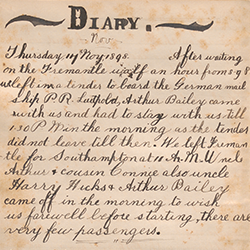 DIARY.
Nov.
Thursday 17 Nov 1898. After waiting
on the Fremantle wharf an hour from 8-98
we left in a tender to board the German mail
ship P.R. Luitpold, Arthur Bailey came
with us and had to stay with us till
1.30 P M in the morning as the tender
did not leave till then. We left Freman
tle for Southampton at 11. A.M. Uncle
Arthur & cousin Connie also uncle
Harry Hicks & Arthur Bailey
came off in the morning to wish
us farewell before starting, there are
very few passengers.